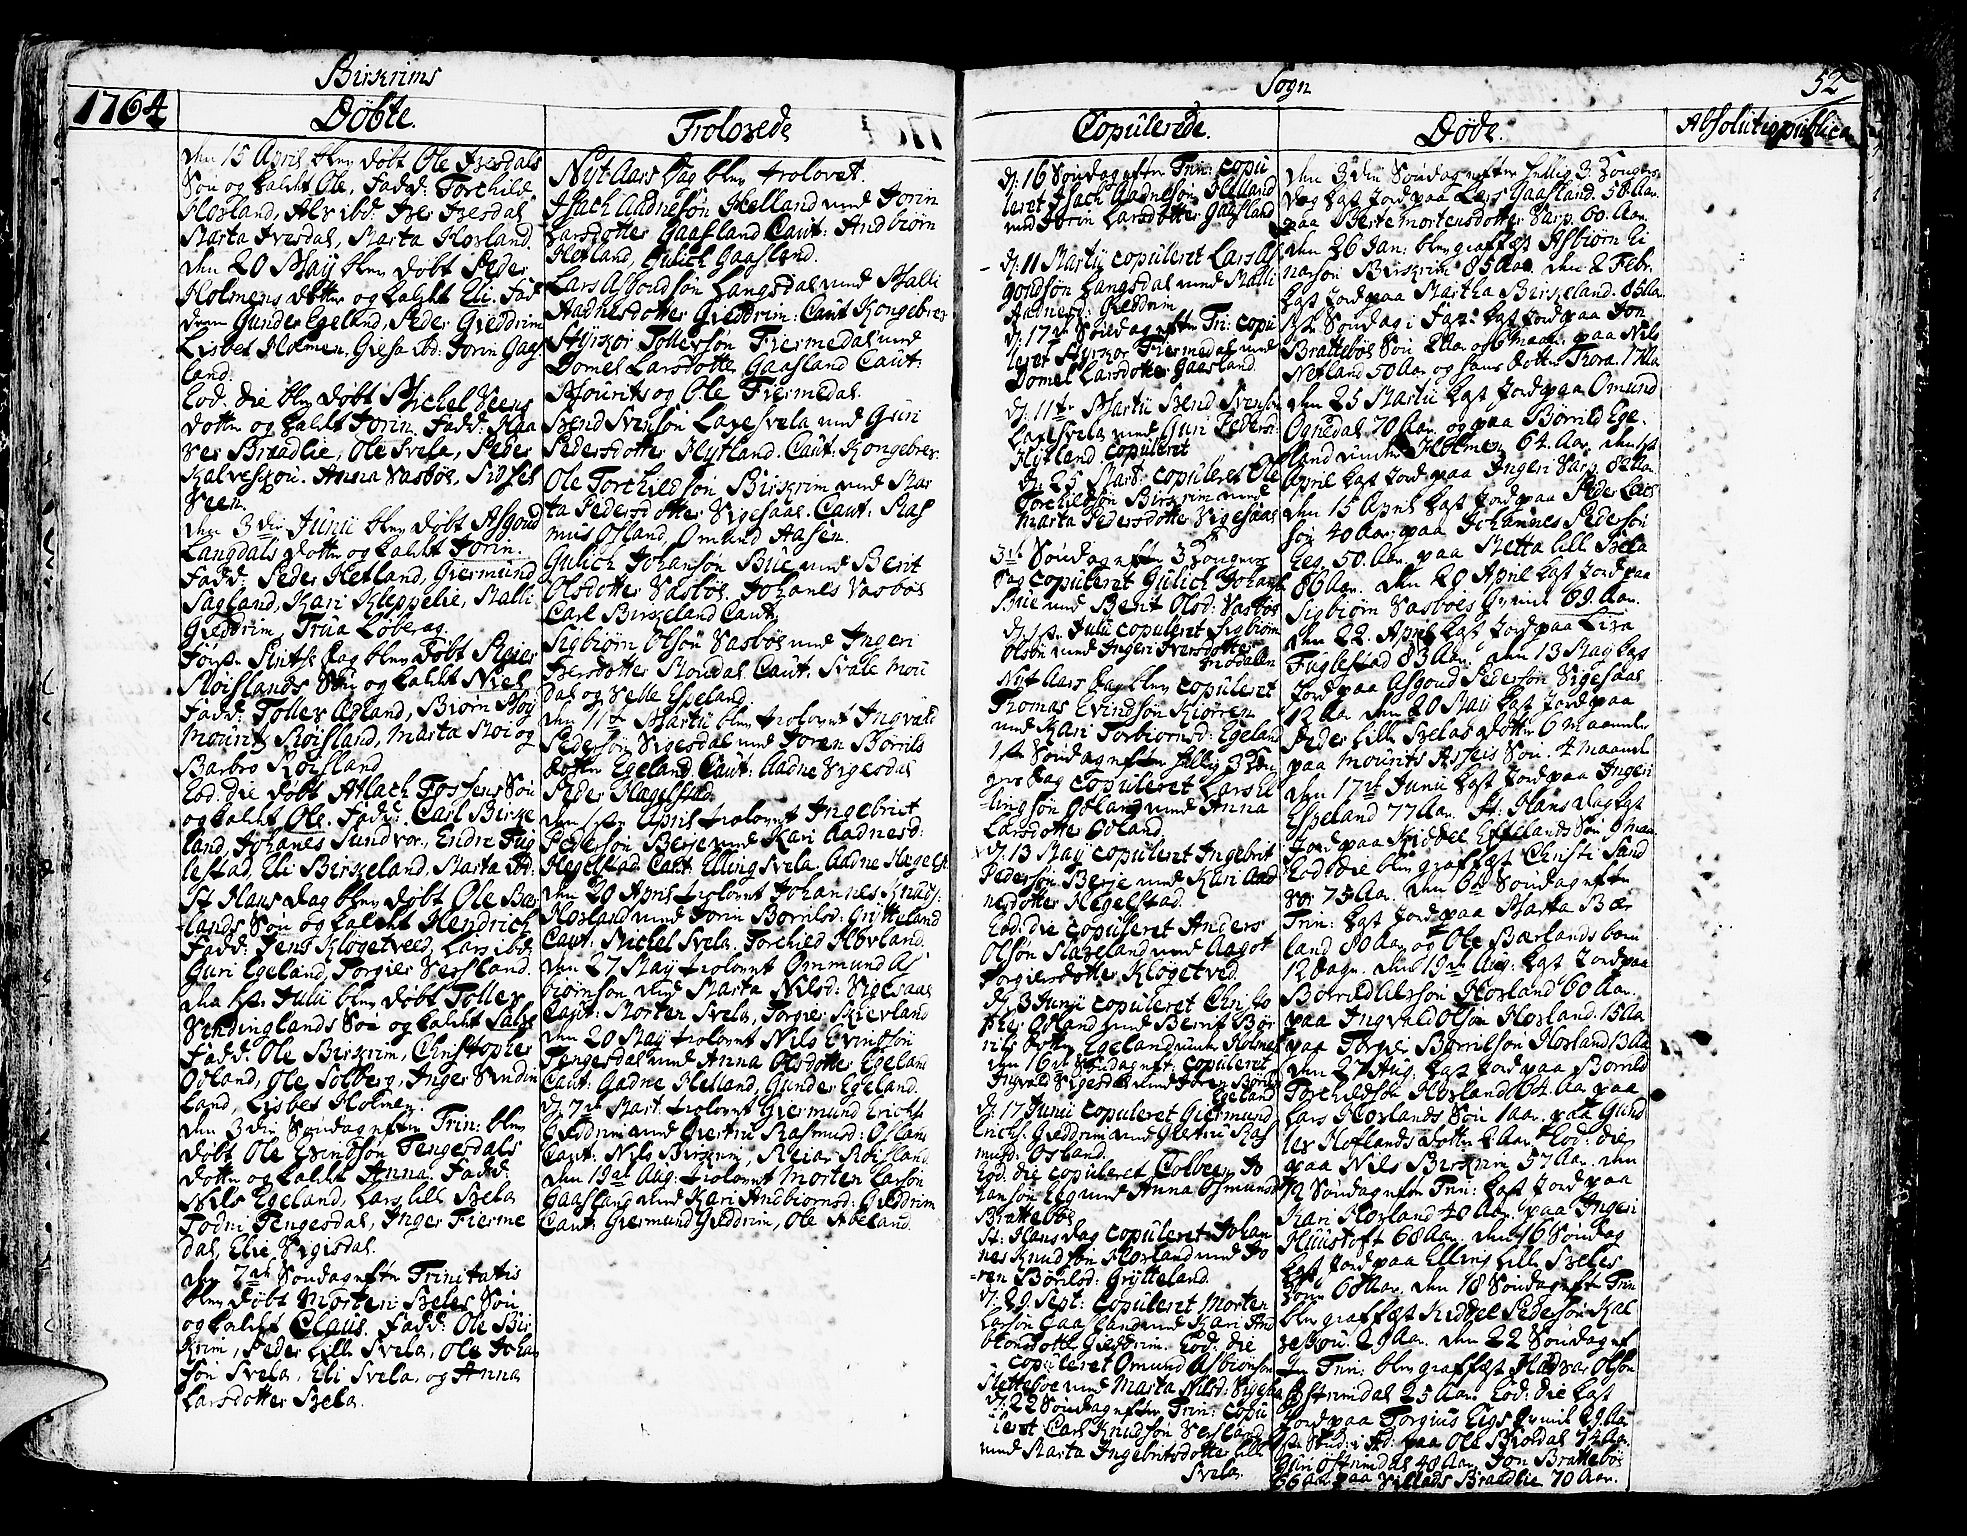 Birkrims
Sogn
52
1764
Døbte.
den 15 April blev døbt Ole Ivesdals
Søn og kaldt Ole, Fadd: Torchild
Hovland, Alv ibd: Iver Ivesdal
Marta Ivesdal, Marta Hovland.
den 20 May blev døbt Peder
Holmens dotter og kaldt Eli. Fad
drere Gunder Egeland, Peder Gieddrim
Lisbet Holmen, Giesa ibd: Jorin Gaas
land.
Eod: die blev døbt Michel Veens
dotter og kaldt Jorin. Fadd: Haa
ver Braadlie, Ole Svela, Peder
Kalveskou. Anna Vasbøe, Sidsel
Veen.
den 3die Junii blev døbt Asgoud
Langdals dotter og kaldt Jorin.
Fadd: Peder Hetland, Giermund
Sagland, Kari Kleppelie, Malli
Gieddrim, Trua Løberag.
Første Pintse dag blev døbt Reier
Røislands Søn og kaldt Niels
Fadd: Tollev Ødland, Biørn Røy
Mourits Røisland, Marta Roi og
Barbro Røisland
Eod: die døbt Atlach Tostens Søn
og kaldt Ole. Fadd: Carl Birke
land, Johanes Sundvor, Endre Fug
lestad, Eli Birkeland, Marta ibd:
St Hans dag blev døbt Ole Bær
lands Søn og kaldt Hendrich
Fadd: Jens Kløgetveed, Lars ibd:
Guri Egeland, Torgier Versland.
den 1ste Julii blev døbt Tollev
Vendinglands Søn og kaldt Salve
Fadd: Ole Birkrim, Christopher
Ødland, Ole Solberg, Inger Vendin
land, Lisbet Holmen.
den 3die Søndag efter Trin: blev
døbt Ole Evindsøn Tengesdals
dotter og kaldt Anna. Fadd:
Nils Egeland, Lars lille Svela
Todni Tengesdal, Inger Fierme
dal, Elie Sigisdal.
den 7de Søndag efter Trinitatis
blev døbt Morten Svelas Søn
og kaldt Claus. Fadd: Ole Bir
krim, Peder Lille Svela, Ole Johan
søn Svela, Eli Svela, og Anna
Larsdotter Svela.
Trolovede
Nyt Aars dag blev trolovet.
Isach Aadnesøn Helland med Jorin
Larsdotter Gaasland Caut: Andbiørn
Hetland, Gulich Gaasland.
Lars Asgoudsøn Langsdal med Malli
Aadnesdotter Gieddrim: Caut Kongebrev
Styrkor Tollevsøn Fiermedal med
Domel Larsdotter Gaasland Caut:
Mourits og Ole Fiermedal.
Bend Svensøn Laxesvela med Guri
Pedersdotter Hytland. Caut: Kongebrev
Ole Torchildsøn Birkrim med Mar
ta Pedersdotter Vigesaas. Caut: Ras
mus Osland, Omund Aasen.
Gulich Johansøn Bue med Berit
Olsdotter Vasbøe. Johanes Vasbøe
Carl Birkeland Caut.
Sigbiørn Olsøn Vasbøe med Ingeri
Iversdotter Mondal Caut: Svale Mon
dal og Velle Espeland.
den 11te Martii blev trolovet Ingvald
Pedersøn Vigesdal med Joren Børrils
dotter Egeland. Caut: Aadne Vigesdal
Peder Hægelstad.
den 1ste April trolovet Ingebrict
Pedersøn Berje med Kari Aadnesd:
Hegelstad Caut: Elling Svela. Aadne Hægelst:
den 20 April trolovet Johannes Knuds:
Hovland med Jorin Børrilsd: Grytteland
Caut: Michel Svela. Torchild Hovland.
den 27 May trolovet Ommund As
biørnsøn med Marta Nilsd: Vigesaas
Caut: Morten Svela, Torger Skievland
den 20 May trolovet Nils Evindsøn
Tengesdal med Anna Olsdotter Egeland
Caut: Aadne Helland, Gunder Egeland.
D: 7de Mart: trolovet Giermund Erichs:
Gieddrim med Giertru Rasmusd: Osland
Caut: Nils Birkrim, Reiar Røisland.
den 19de Aug: trolovet Morten Larsøn
Gaasland med Kari Andbiørnsd: Gieddrim
Caut: Giermund Gieddrim, Ole Abeland
Copulerede.
d: 16 Søndag efter Trin: copu
leret Isach Aadnesøn Helland
med Jorin Larsdotter Gaasland
d: 11 Martij copuleret Lars As
goudsøn Langsdal med Malli
Aadnesd: Gieddrim
d: 17de Søndag efter Tri: copu
leret Styrkor Fiermedal med
Domel Larsdotter Gaasland.
d: 11te Martii Bend Svensøn
Laxesvela med Guri Peders:
Hytland copuleret
d: 25 Mart: copuleret Ole
Torchildsøn Birkrim med
Marta Pedersdotter Vigesaas
3de Søndag efter 3 Konger
dag copuleret Gulich Johans:
Bue med Berit Olsd: Vasbøe
d: 1ste Julii copuleret Sigbiørn
Olsøn med Ingeri Iversdotter
Modalen
Nyt Aars dag blev copuleret
Thomas Evindsøn Kiørren
med Kari Torbiornsd: Egeland
1ste Søndag efter Hellig 3 Kon
gers dag copuleret Lars El
lingsøn Ødland med Anna
Larsdotter Ødland
d: 13 May copuleret Ingebrit
Pedersøn Berje med Kari Aad
nesdotter Hegelstad.
Eod: die copuleret Anders
Olsøn Slaxeland med Aagot
Torgiersdotter Kløgetved.
d: 3 Junii copuleret Christo
pher Ødland med Berrit Bør
rils dotter Egeland med Holmen
den 16de Søndag eft: copuleret
Ingvald Vigesdal med Joren Børrils:
Egeland
d: 17 Junii copuleret Giermund
Erichs: Gieddrim med Giertru Ras
musd: Osland.
Eod: die copuleret Colbeen Jo
hansøn Eeg med Anna Osmunds:
Brattebøe
St: Hans dag copuleret Johan
nes Knudsøn Hovland med Jo
ren Børrilsd: Grytteland.
d: 29 Sept: copuleret Morten
Larsøn Gaasland med Kari And
biornsdotter Gieddrim. Eod: die
copuleret Omund Asbiørnsøn
Slettebøe med Marta Nilsd: Vigesaa
d: 22 Søndag efter Trin: copu
leret Carl Knudsøn Versland
med Marta Ingebritsdotter Lille
Svela.
Døde.
den 3die Søndag efter Hellig 3 Konger
dag kast Jord paa Lars Gaasland. 58 Aar.
paa Berte mortensdotter Sarp. 60. Aar.
den 26 Jan: blev graffæst Asbiørn Ei
narsøn Birkrim 85 Aar. den 2 Febr.
kast Jord paa Martha Birkeland. 85 Aar
1ste Søndag i Fast: kast Jord paa Jon
Brattebøes Søn 2 Aar og 6 maan: paa Nils
Netland 50 Aar og hans dotter Thora. 17 Aar
den 25 Martii kast Jord paa Omund
Ognedal 70 Aar. og paa Børrild Ege
land Holmen 64. Aar. den 1st
April kast Jord paa Ingeri Sarp. 82 Aar.
den 15 April kast Jord paa Peder Lars
søn 40 Aar: paa Johannes Pedersøn
Eeg. 50. Aar. paa Metta lille Svela
86 Aar. den 20 April kast Jord paa
Sigbiørn Vasbøes qvinde 69. Aar.
den 22. April kast Jord paa Liva
Fuglestad 83 Aar. den 13 May kast
Jord paa Asgoud Pedersøn Vigesaas
12 Aar. den 20 May kast Jord paa
Peder lille Svelas dotter 6 maaneder
paa Mourits Asseis Søn 4 Maaned
den 17de Junii kast Jord paa Ingeri
Espeland 77 Aar. St: Hans dag kast
Jord paa Kiddel Effelands Søn 9 maa:
Eod die blev graffæst Christi Sand
vor 75 Aar. den 6te Søndag efter
Trin: kast Jord paa Marta Bær
land 80 Aar og Ole Bærlands barn
12 dage. den 19de Aug: kast Jord paa
Børrild Alvsøn Hovland 60 Aar.
paa Ingvald Olsøn Hovland. 15 Aar
paa Torger Børrilsøn Hovland 3 Aar
den 27 Aug. kast Jord paa Børrild
Torchildsøn Hovland 64. Aar paa
Lars Hovlands Søn 1 aar. paa Gund
lev Hoflands dotter 2 Aar. Eod: die
paa Nils Birkrim 57 Aar. den
12 Søndag efter Trin: kast Jord paa
Kari Hovland 40 Aar. paa Ingeri
Huustoft 68 Aar. den 16 Søndag
kast Jord paa Elling Lille Svelas
kone 60 Aar. den 18 Søndag eft Trin
blev graffæst Kiddel Pedersøn Kal
veskou. 29 Aar. den 22 Søndag eft
Trin: blev graffæst Hadvar Olsøn
Østrimdal 25 Aar. Eod: die kast
Jord paa Torgius Eegs qvinde 29. Aar
1st Sønd: i Ad: paa Ole Biordal 74 Aar.
Guri Østrimdal 40 Aar. Jon Brattebøe
66 Aar. paa Villads Braadlie 70 Aar.
Absolutio publica